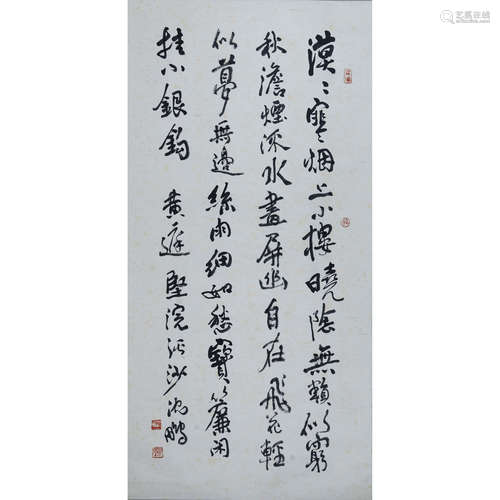 漠〻寒烟上小樓曉陰無賴似窮
秋澹煙流水畫屏幽自在飛花輕
似夢無邊絲雨細如愁寶簾闲
挂小銀鈎 黄庭堅浣溪沙沈鹏
艺狐在线